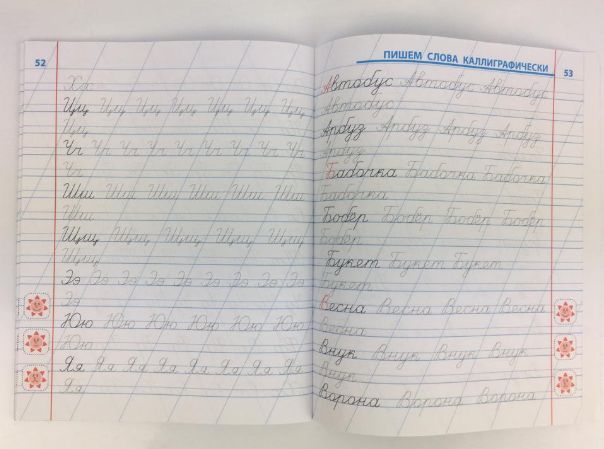 52
Хх
Цц Цц Цц Цц Цц Цц Цц
Цц
Чч Чч Чч Чч Чч Чч Чч Чч Чч
Чч
Шш Шш Шш Шш Шш Шш
Шш
Щщ Щщ Щщ Щщ Щщ
Щщ
Ээ Ээ Ээ Ээ Ээ Ээ Ээ Ээ Ээ
Ээ
Юю Юю Юю Юю Юю Юю
Юю
Яя Яя Яя Яя Яя Яя Яя Яя
Яя
ПИШЕМ СЛОВА КАЛЛИГРАФИЧЕСКИ 53
Автобус Автобус Автобус
Автобус
Арбуз Арбуз Арбуз Арбуз
Арбуз
Бабочка Бабочка Бабочка
Бабочка
Бобёр Бобёр Бобёр Бобёр
Бобёр
Букет Букет Букет
Букет
Весна Весна Весна Весна
Весна
Внук Внук Внук Внук
Внук
Ворона Ворона Ворона